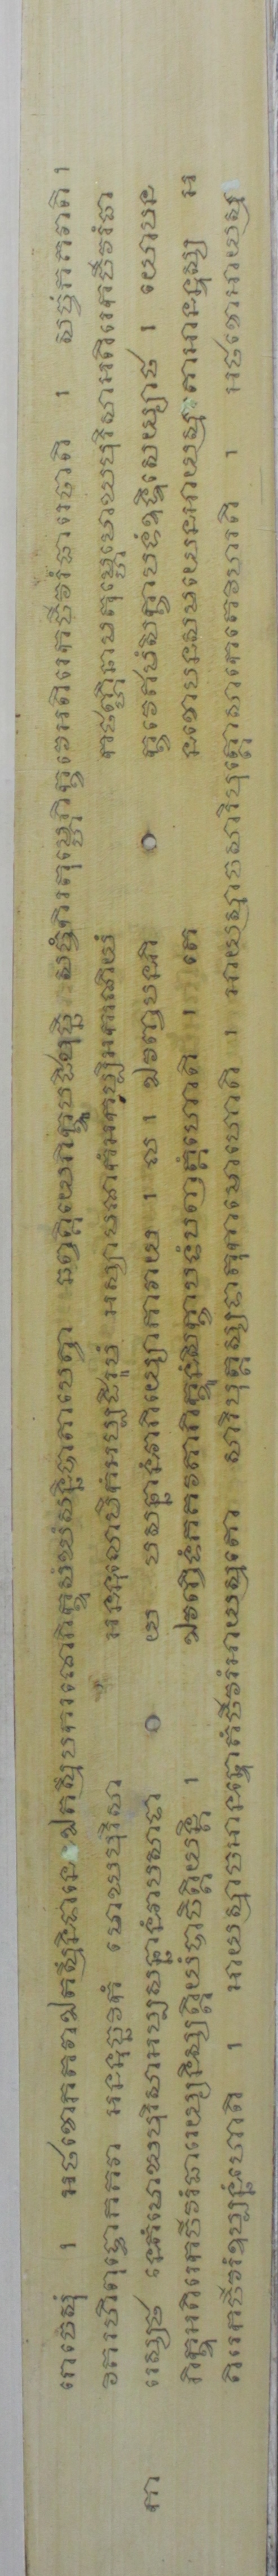 រោចេសុំ ។ អថខោភគវាឯតស្មឹនិទានេឯតស្មឹបករណេភិក្ខុសំឃំសន្និបាតាបេត្វា ធព្វគ្គិយេភិក្ខូបដិបុច្ឆិ សច្ចំកិរតុម្ហេភិក្ខវេអតិរេកចីវរំធារេថាតិ ។ សច្ចំភគវាតិ ។
វិគរហិពុទ្ធោភគវា អននុច្ឆវិកំ មោឃបុរិសា អននុលោមិកំអប្បដិរូបំ អស្សាមណកំអកប្បិអករណិយំ កថញ្ហិនាមតុម្ហេមោឃបុរិសាអតិរេកចីវរំធា
កា រេស្សថ នេតំមោឃបុរិសាអប្បសន្នានំវាបសាទា យ បសន្នានំវាភិយ្យោភាវាយ ។ ល ។ ឯវញ្ចបនភិ ក្ខវេឥមំសិក្ខាបទំឧទ្ទិសេយ្យាថ ។ យោបន
ភិក្ខុអតិរេកចីវរំធារេយ្យនិស្សគ្គិយំបាចិត្តិយន្តិ ។ ឯវញ្ចិទំភគវតាភិក្ខុនំសិក្ខាបទំបញ្ញត្តំហោតិ ។ តេ នខោបនសមយេនអាយស្មតោអានន្ទស្ស អ
តិរេកចីវរំឧប្បន្នំហោតិ ។ អាយស្មាចអានន្ទោតំចីវរំអាយស្មតោ សារិបុត្តស្សទាតុកាមោហោតិ ។ អាយស្មាចសារិបុត្តោសាកេតេវិហរតិ ។ អថខោអាយស្ម